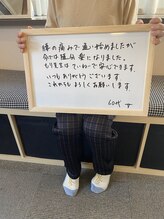 膝の痛みで通い始めましたが
今では随分楽になりました。
もり先生はていねいで安心できます。
いつもありがとうございます
これからもよろしくお願いします
60代